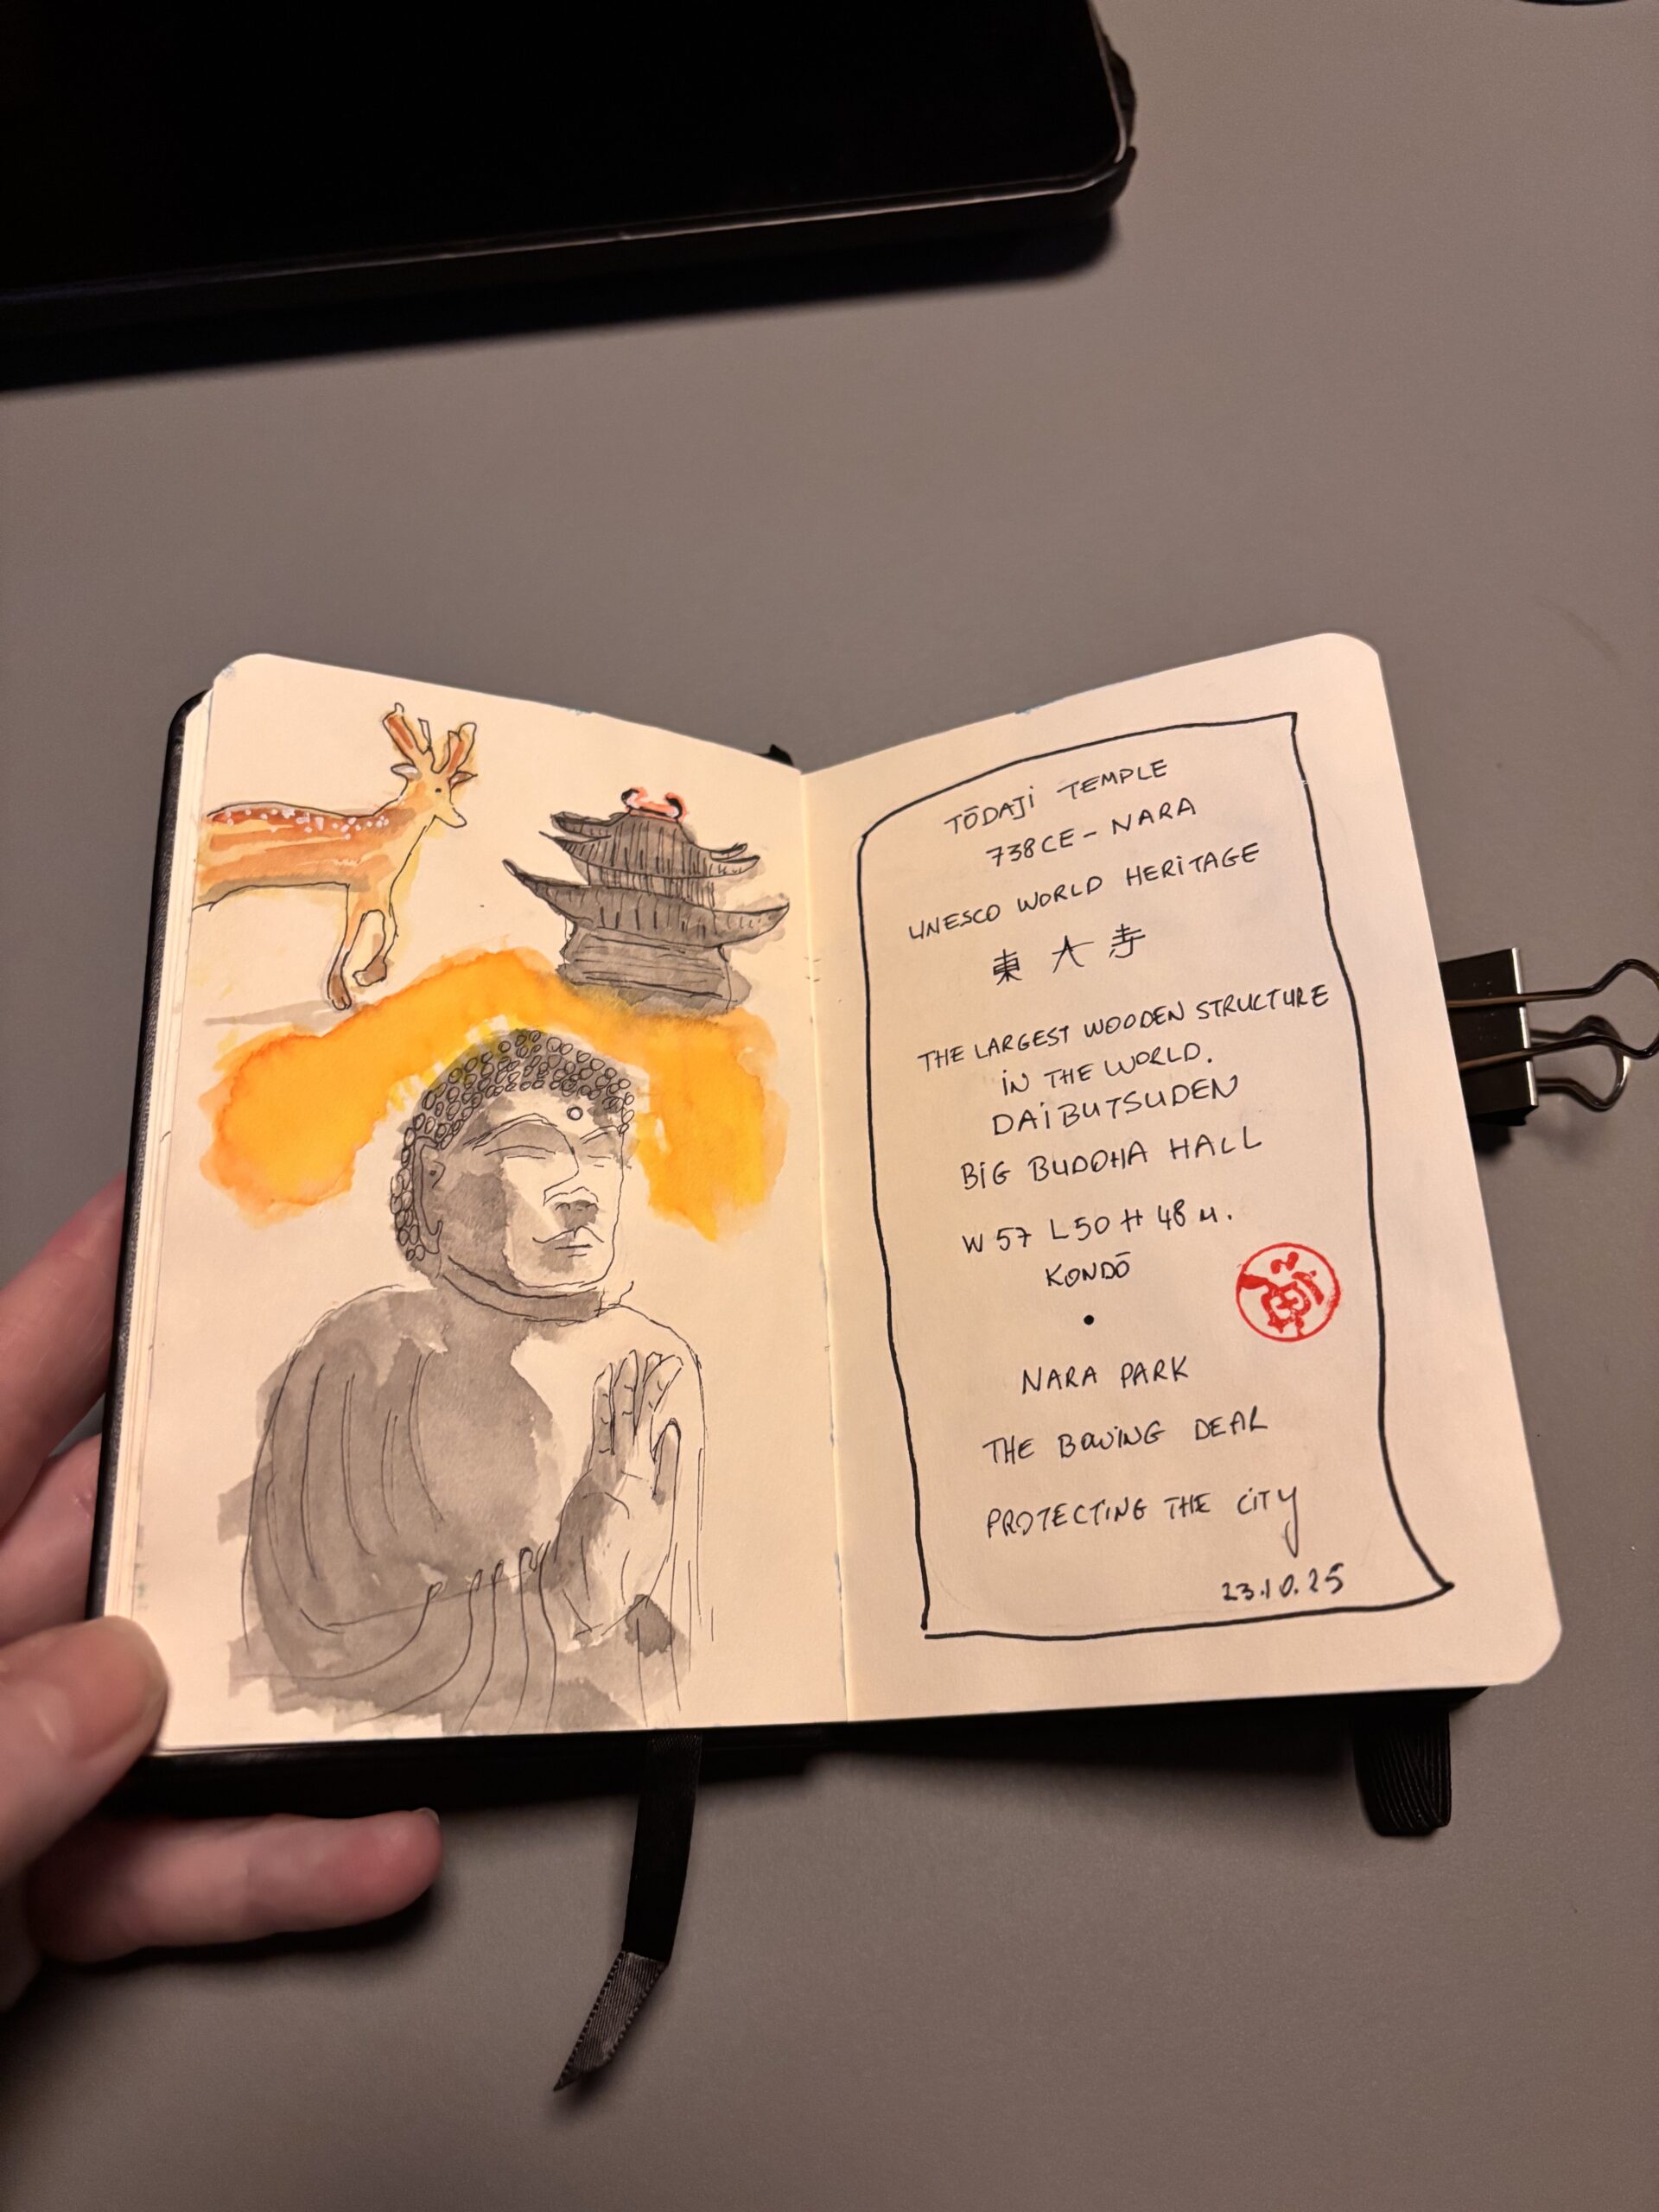 TŌDAJI TEMPLE
738CE - NARA
UNESCO WORLD HERITAGE
東大寺
THE LARGEST WOODEN STRUCTURE
IN THE WORLD.
DAIBUTSUDEN
BIG BUDDHA HALL
W 57 L 50 H 48 M.
KONDŌ
•
NARA PARK
THE BOWING DEAR
PROTECTING THE CITY
23.10.25